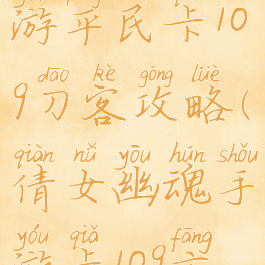 游平民卡10
dāo kè gōng lüè
9刀客攻略(
qiàn nǚ yōu hún shǒu
倩女幽魂手
yóu qiǎ fāng
游卡109方